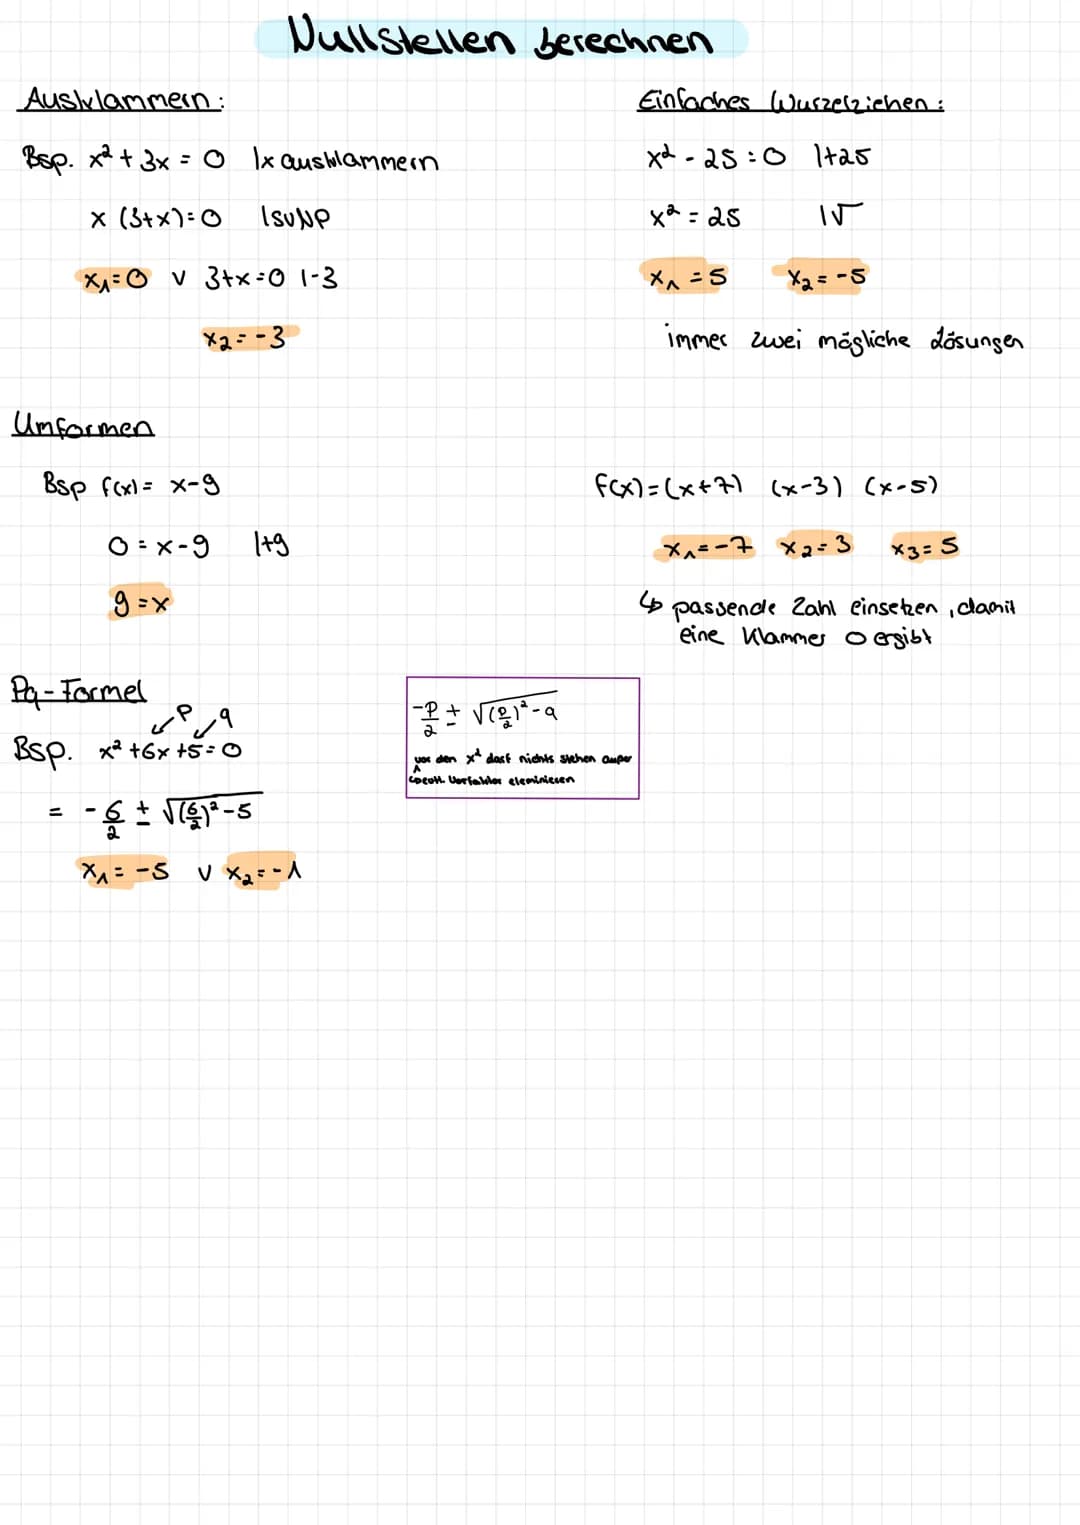 Nullstellen berechnen
Ausklammern:
Bsp. x² + 3x = 0 |x ausklammern
x (3+x)=0 |SVNP
x₁=0 v 3+x=0 |-3
x₂=-3
Einfaches Wurzelziehen:
x² - 25=0 |+25
x² = 25 |√
x₁ =5 x₂=-5
immer zwei mögliche Lösungen
Umformen
Bsp f(x)= x-9
0=x-9 |+9
9=x
f(x)=(x+7) (x-3) (x-5)
x₁=-7 x₂=3 x₃=5
↳ passende Zahl einsetzen, damit
eine Klammer 0 ergibt
Pq-Formel
p q
Bsp. x² +6x +5=0
= -6/2 ± √(6/2)²-5
x₁=-5 v x₂=-1
-p/2 ± √(p/2)²-q
vor den x² darf nichts stehen außer
1 Vorfaktor eleminieren